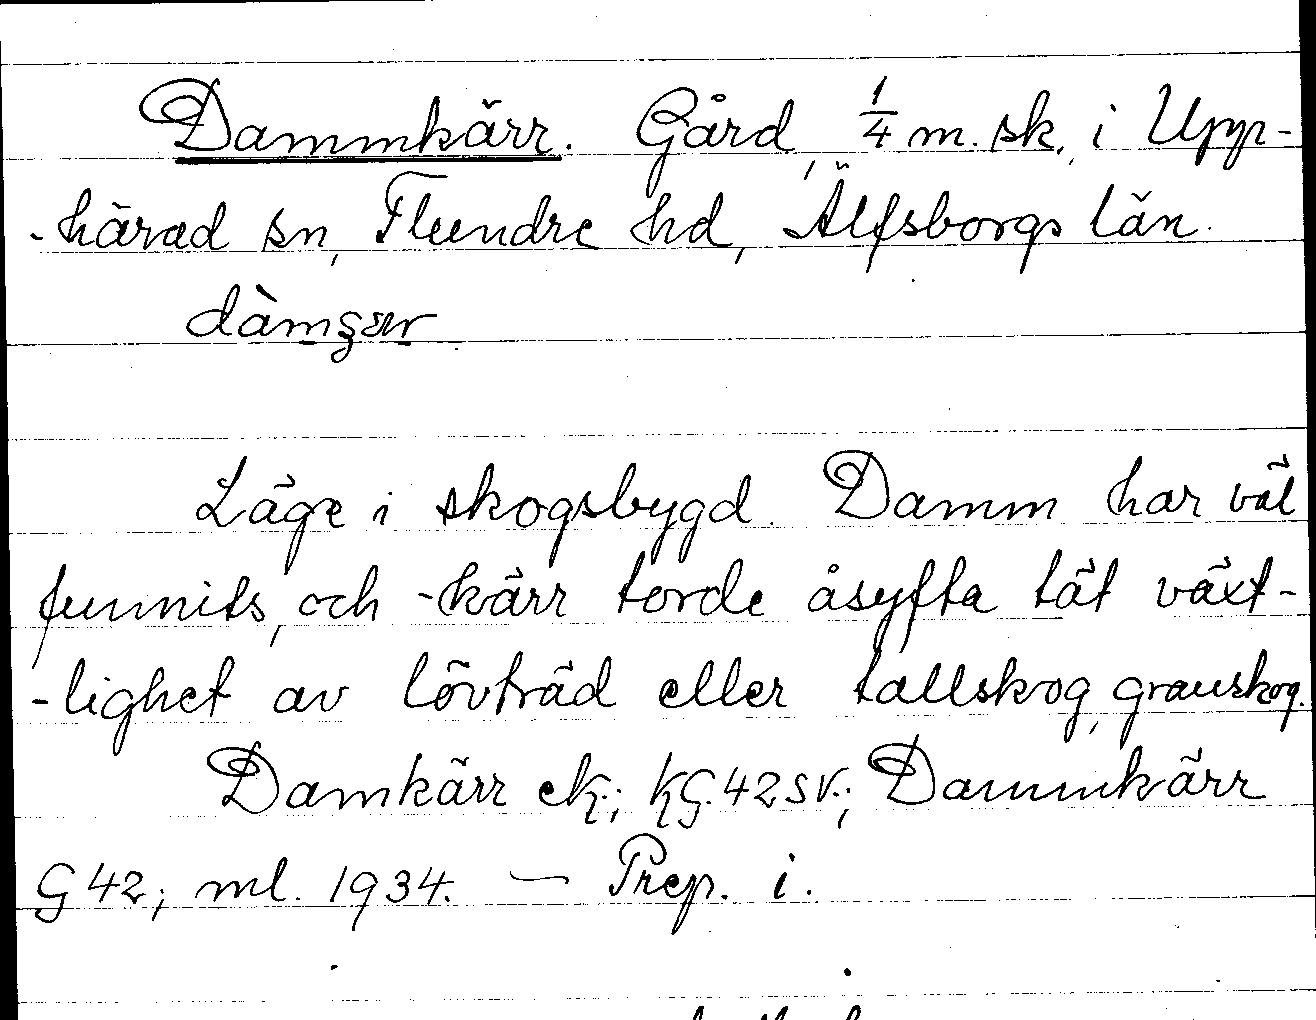 Dammkärr. Gård, 1/4 m. sk., i Upp-
-härad sn, Flundre hd, Älfsborgs län.
Läge i skogsbygd. Damm har väl
funnits, och -kärr torde åsyfta tät växt-
-lighet av lövträd eller tallskog, granskog.
Damkärr eK.; KG.42SV.; Dammkärr
G 42; ml. 1934. — Prep. i.